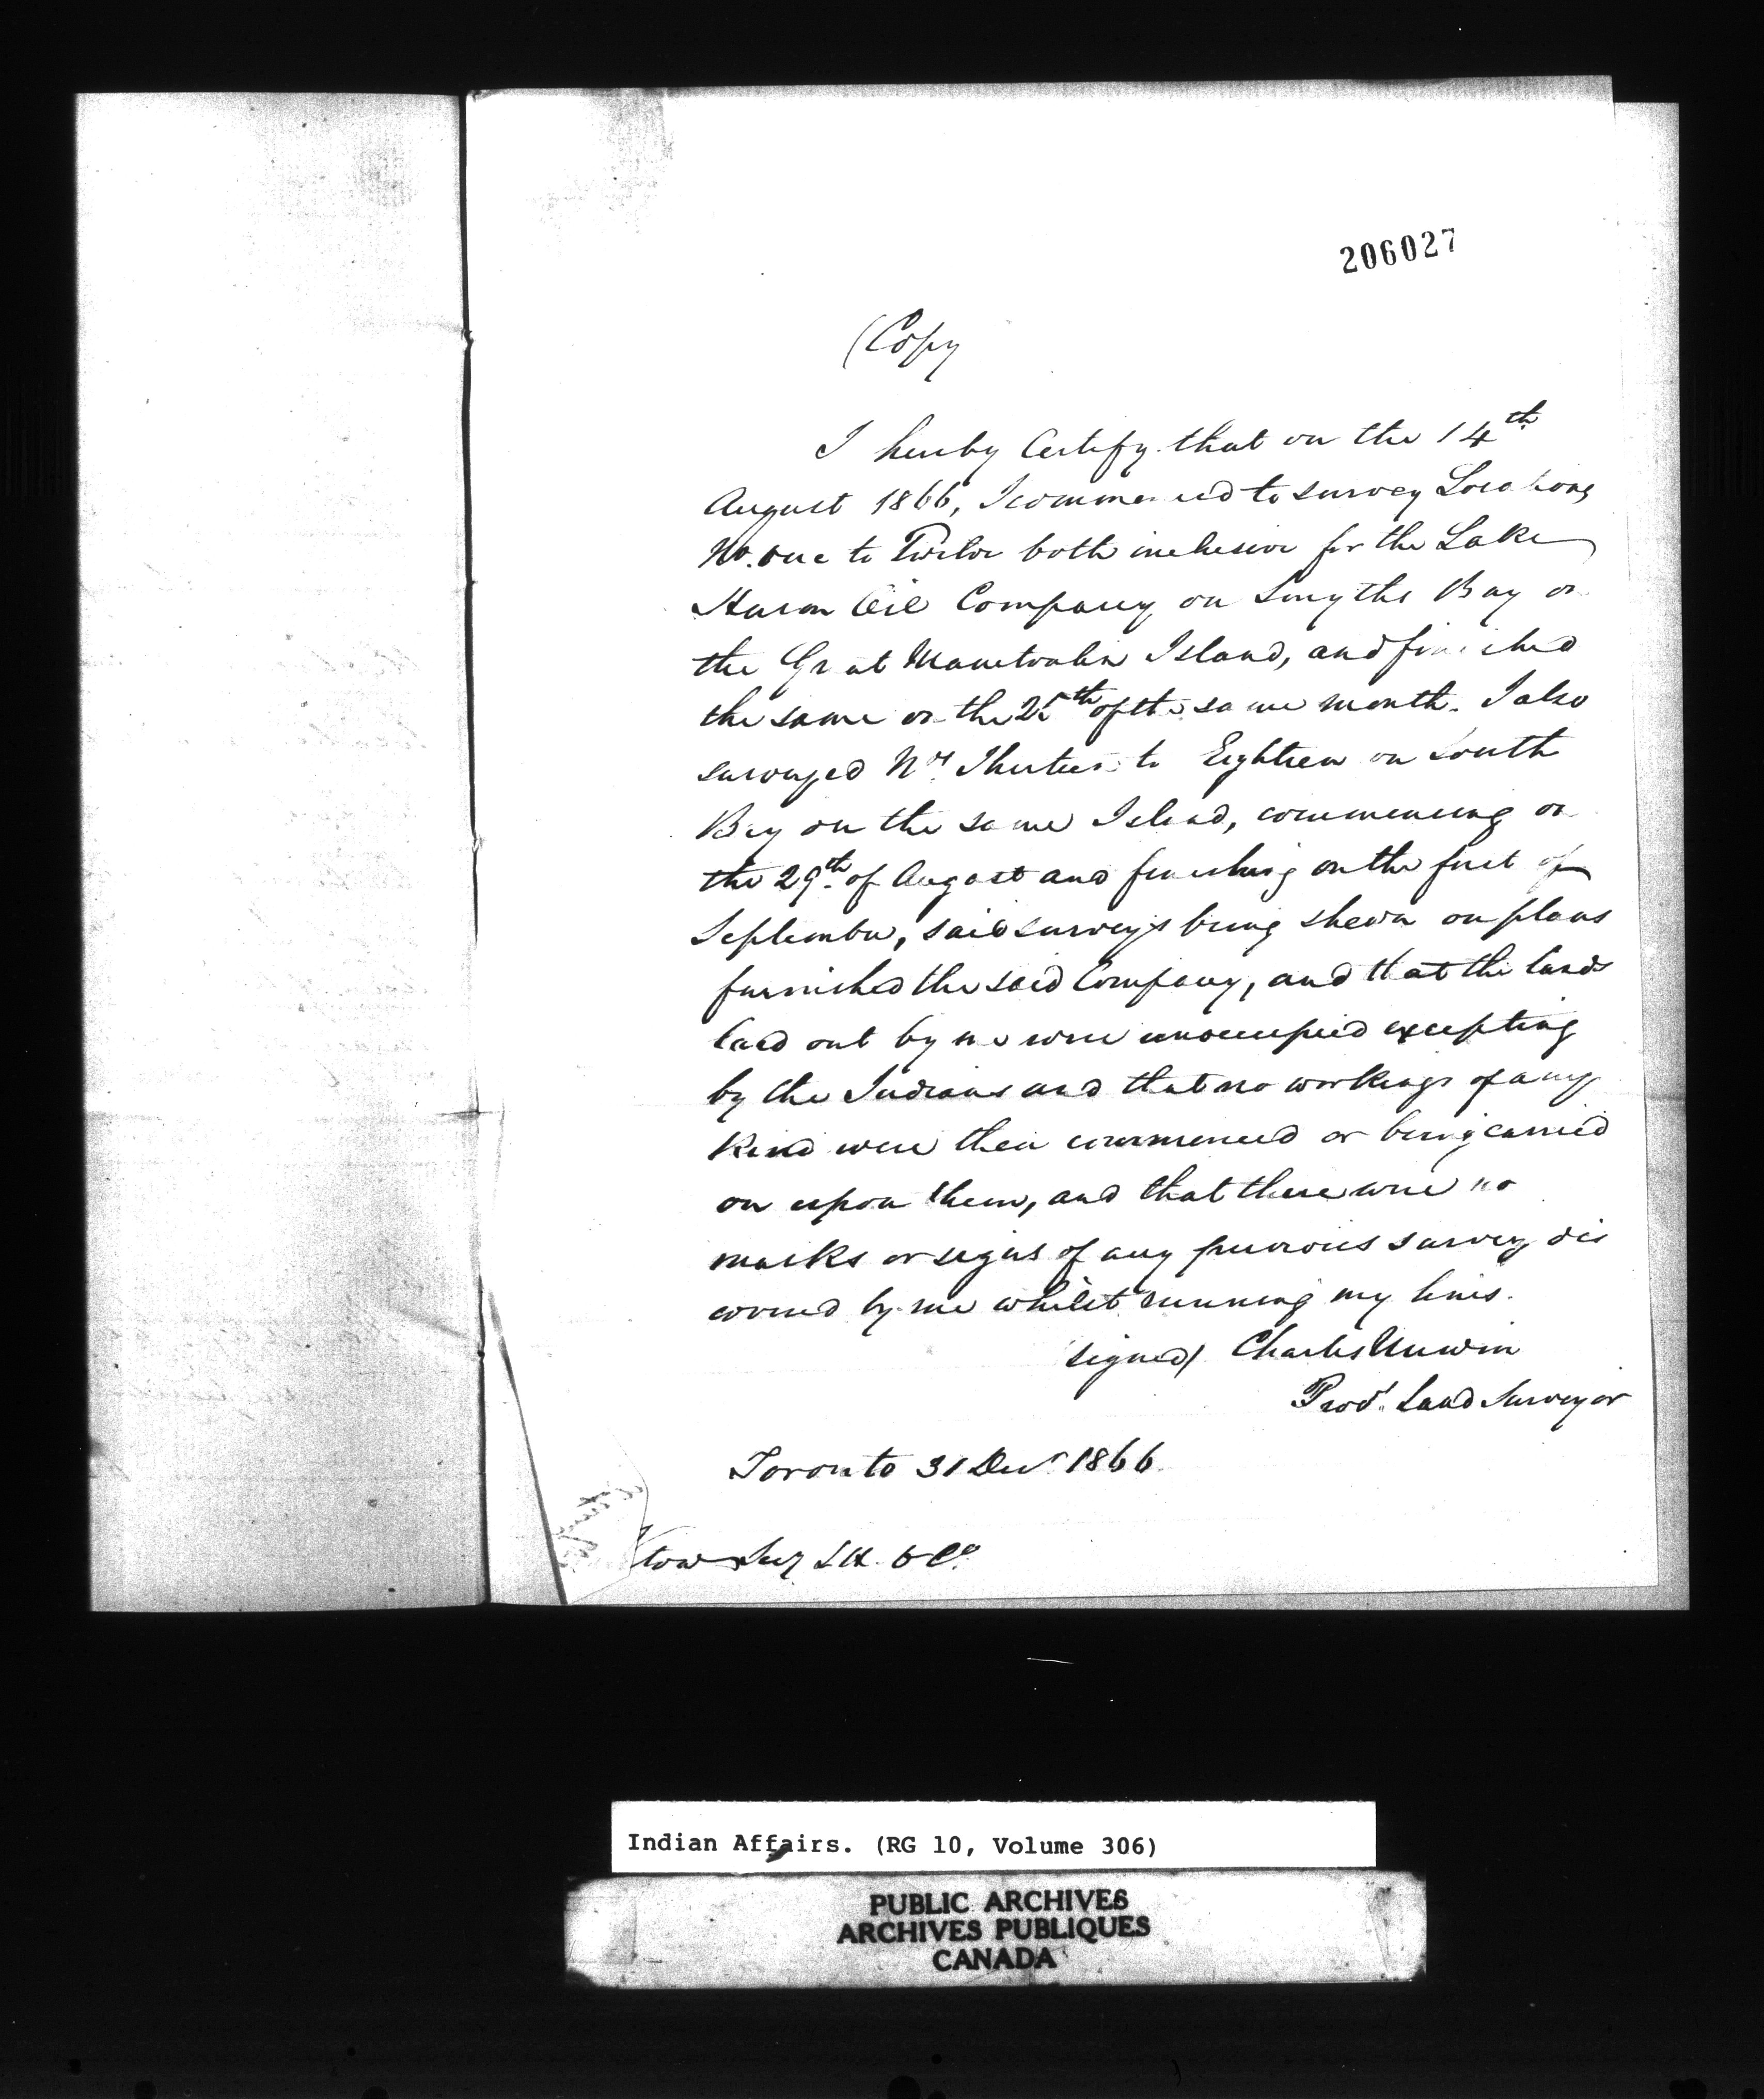 206027
(Copy
I hereby Certify that on the 14th
August 1866, I commenced to survey Locations
No. one to Twelve both inclusive for the Lake
Huron Oil Company on Smyths Bay on
the Great Manitoulin Island, and finished
the same on the 25th of the same month. I also
surveyed Nos. Thirteen to Eighteen on South
Bay on the same Island, commencing on
the 29th. of August and finishing on the first of
September, said surveys being shewn on plans
furnished the said Company, and that the lands
laid out by me were unoccupied excepting
by the Indians and that no workings of any
kind were then commenced or being carried
on upon them, and that there were no
marks or signs of any previous survey dis
covered by me whilst running my lines.
signed) Charles Unwin
Provl. Land Surveyor
Toronto 31 Decr. 1866.
L H. O Co.
Indian Affairs. (RG 10, Volume 306)
PUBLIC ARCHIVES
ARCHIVES PUBLIQUES
CANADA